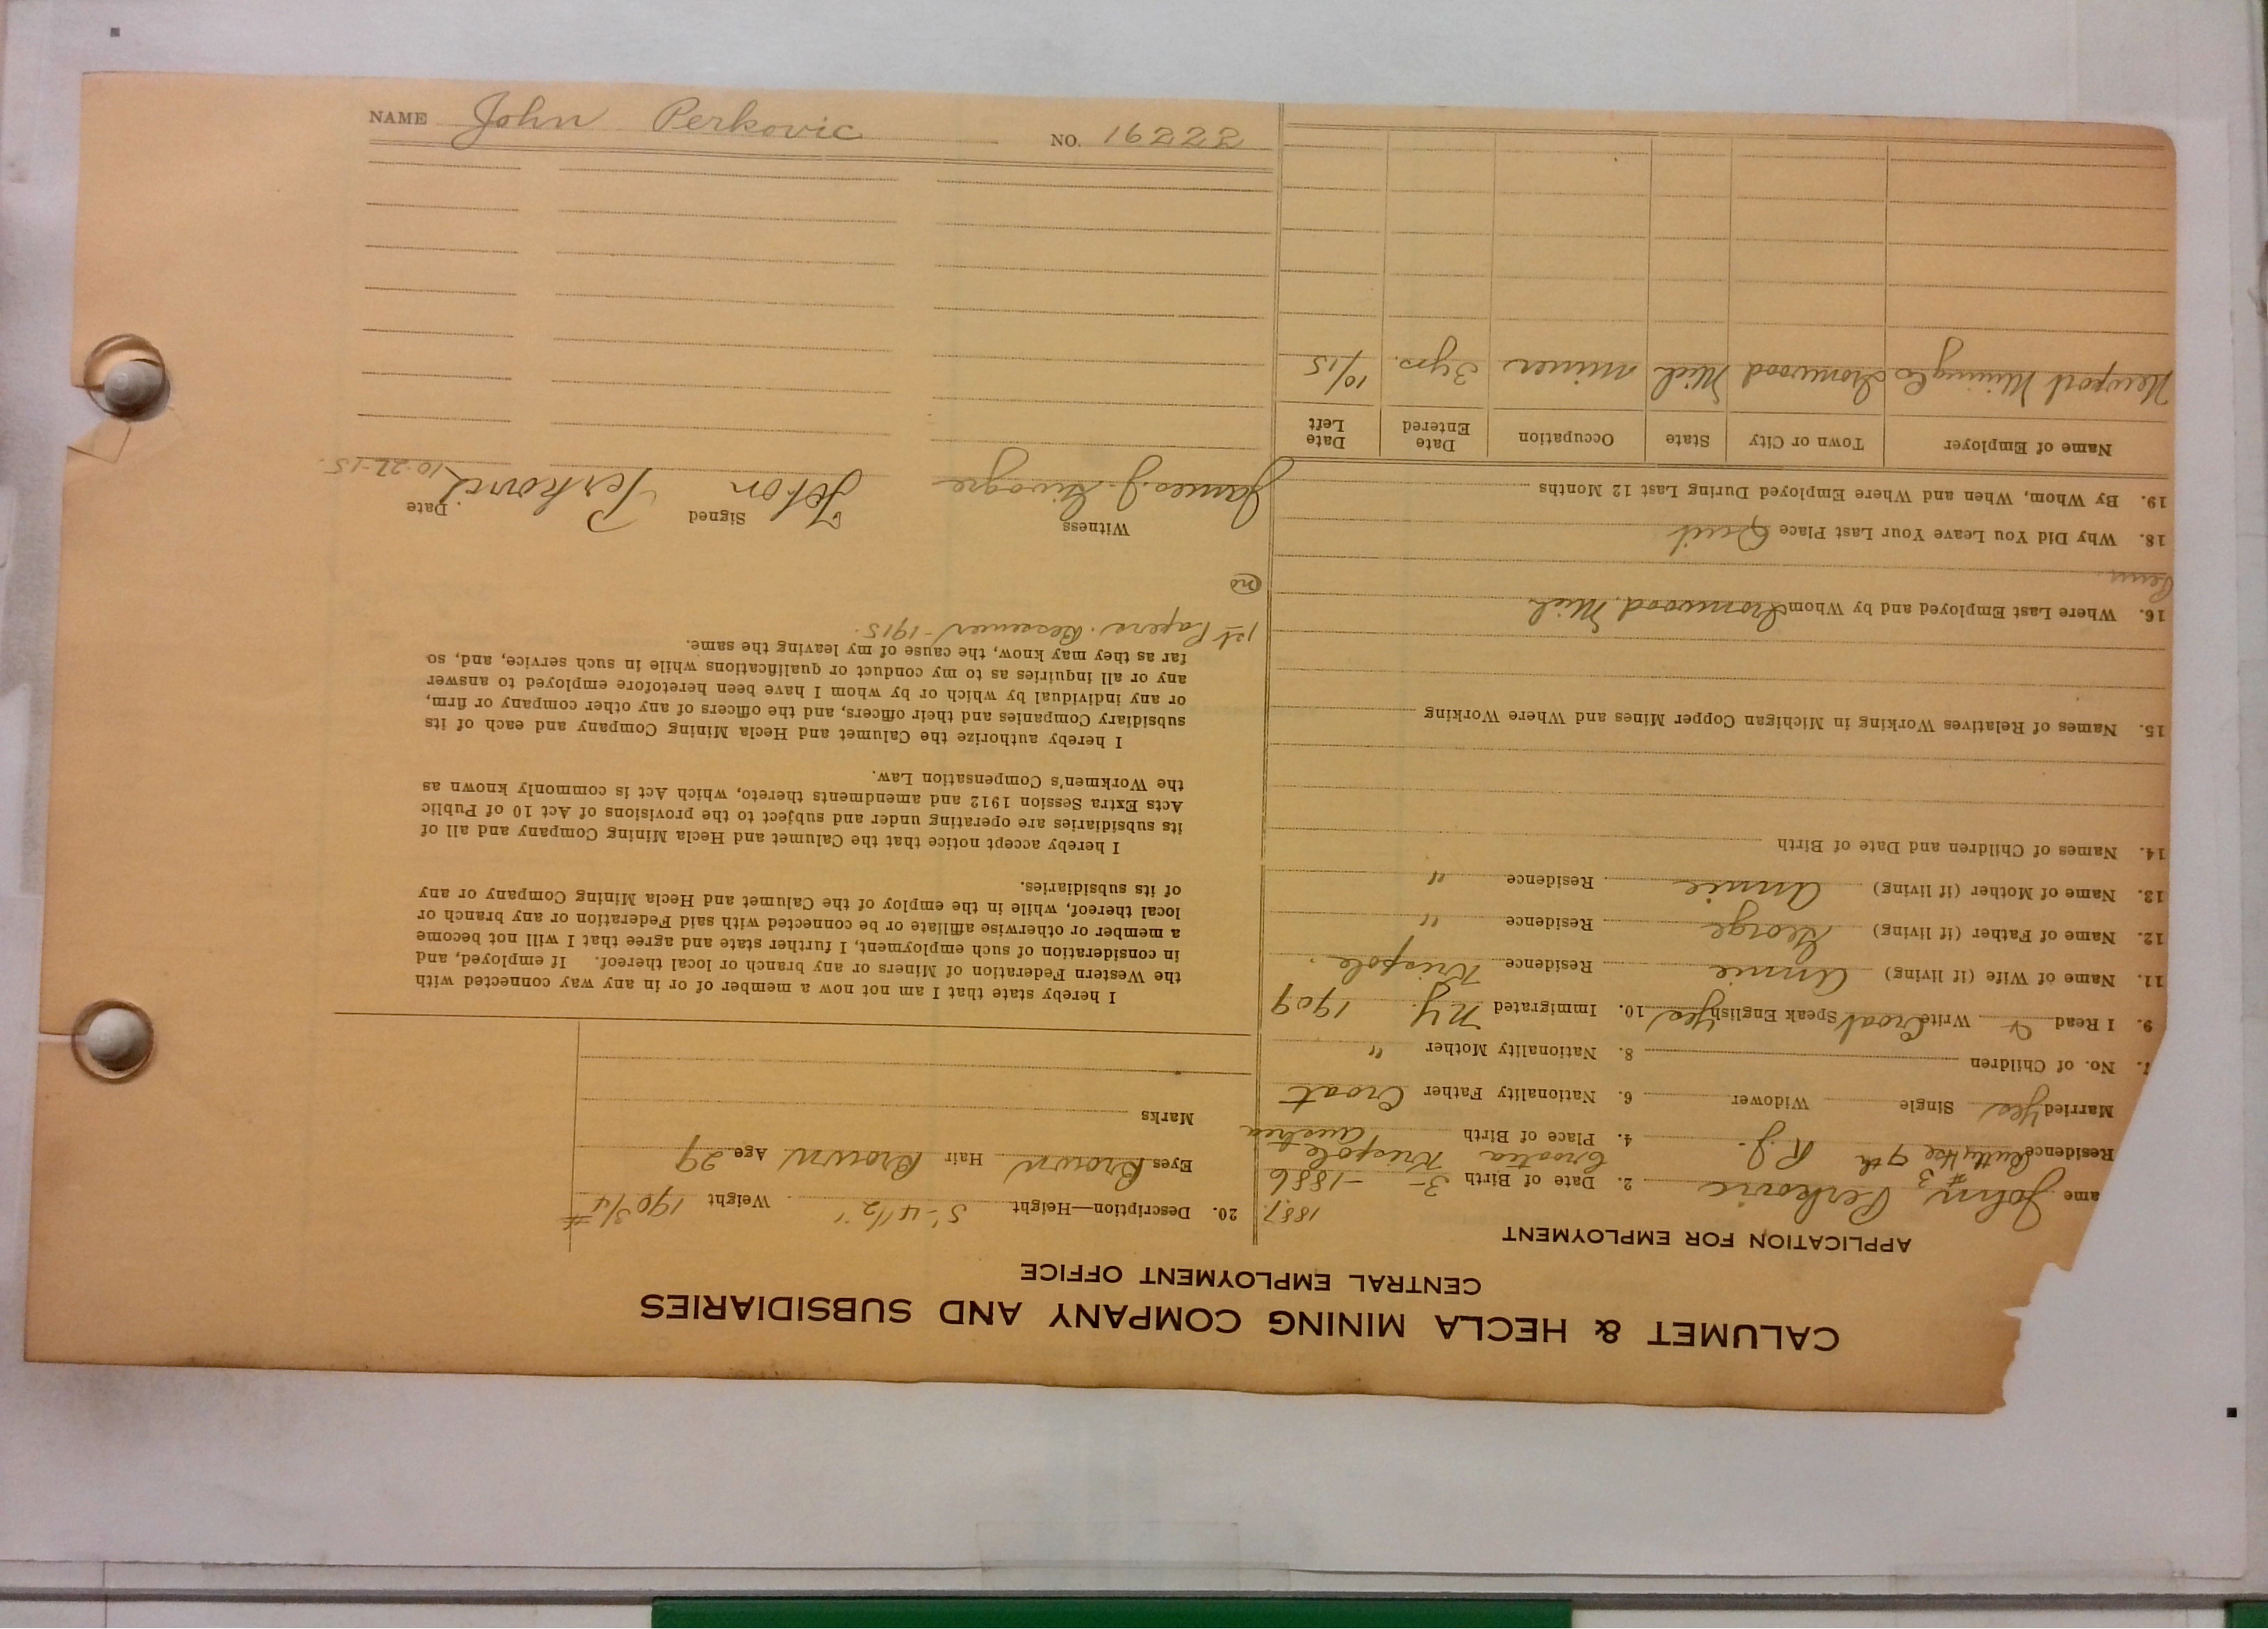 CALUMET & HECLA MINING COMPANY AND SUBSIDIARIES
CENTRAL EMPLOYMENT OFFICE
APPLICATION FOR EMPLOYMENT
ame John Perkovic 2. Date of Birth 3- -1886 1887
Residence #3 9th R.J. 4. Place of Birth Croatia Krispole Austria
Married Yes Single Widower 6. Nationality Father Croat
7. No. of Children 8. Nationality Mother "
9. I Read & Write Croat Speak English Yes 10. Immigrated N.Y. 1909
11. Name of Wife (if living) Annie Residence Krispole.
12. Name of Father (if living) George Residence "
13. Name of Mother (if living) Annie Residence "
14. Names of Children and Date of Birth
15. Names of Relatives Working in Michigan Copper Mines and Where Working
16. Where Last Employed and by Whom Ironwood, Mich
18. Why Did You Leave Your Last Place Quit
19. By Whom, When and Where Employed During Last 12 Months
Name of Employer Town or City State Occupation Date Entered Date Left
Newport Mining Co Ironwood Mich miner 3 yrs. 10/15
20. Description—Height 5'-4 1/2" Weight 190 3/4 #
Eyes Brown Hair Brown Age 29
Marks
I hereby state that I am not now a member of or in any way connected with
the Western Federation of Miners or any branch or local thereof. If employed, and
in consideration of such employment, I further state and agree that I will not become
a member or otherwise affiliate or be connected with said Federation or any branch or
local thereof, while in the employ of the Calumet and Hecla Mining Company or any
of its subsidiaries.
I hereby accept notice that the Calumet and Hecla Mining Company and all of
its subsidiaries are operating under and subject to the provisions of Act 10 of Public
Acts Extra Session 1912 and amendments thereto, which Act is commonly known as
the Workmen's Compensation Law.
I hereby authorize the Calumet and Hecla Mining Company and each of its
subsidiary Companies and their officers, and the officers of any other company or firm,
or any individual by which or by whom I have been heretofore employed to answer
any or all inquiries as to my conduct or qualifications while in such service, and, so
far as they may know, the cause of my leaving the same.
1st Papers. Bessemer - 1915.
no
Witness Signed Date
James J. John Perkovic 10-22-15.
NAME John Perkovic NO. 16222